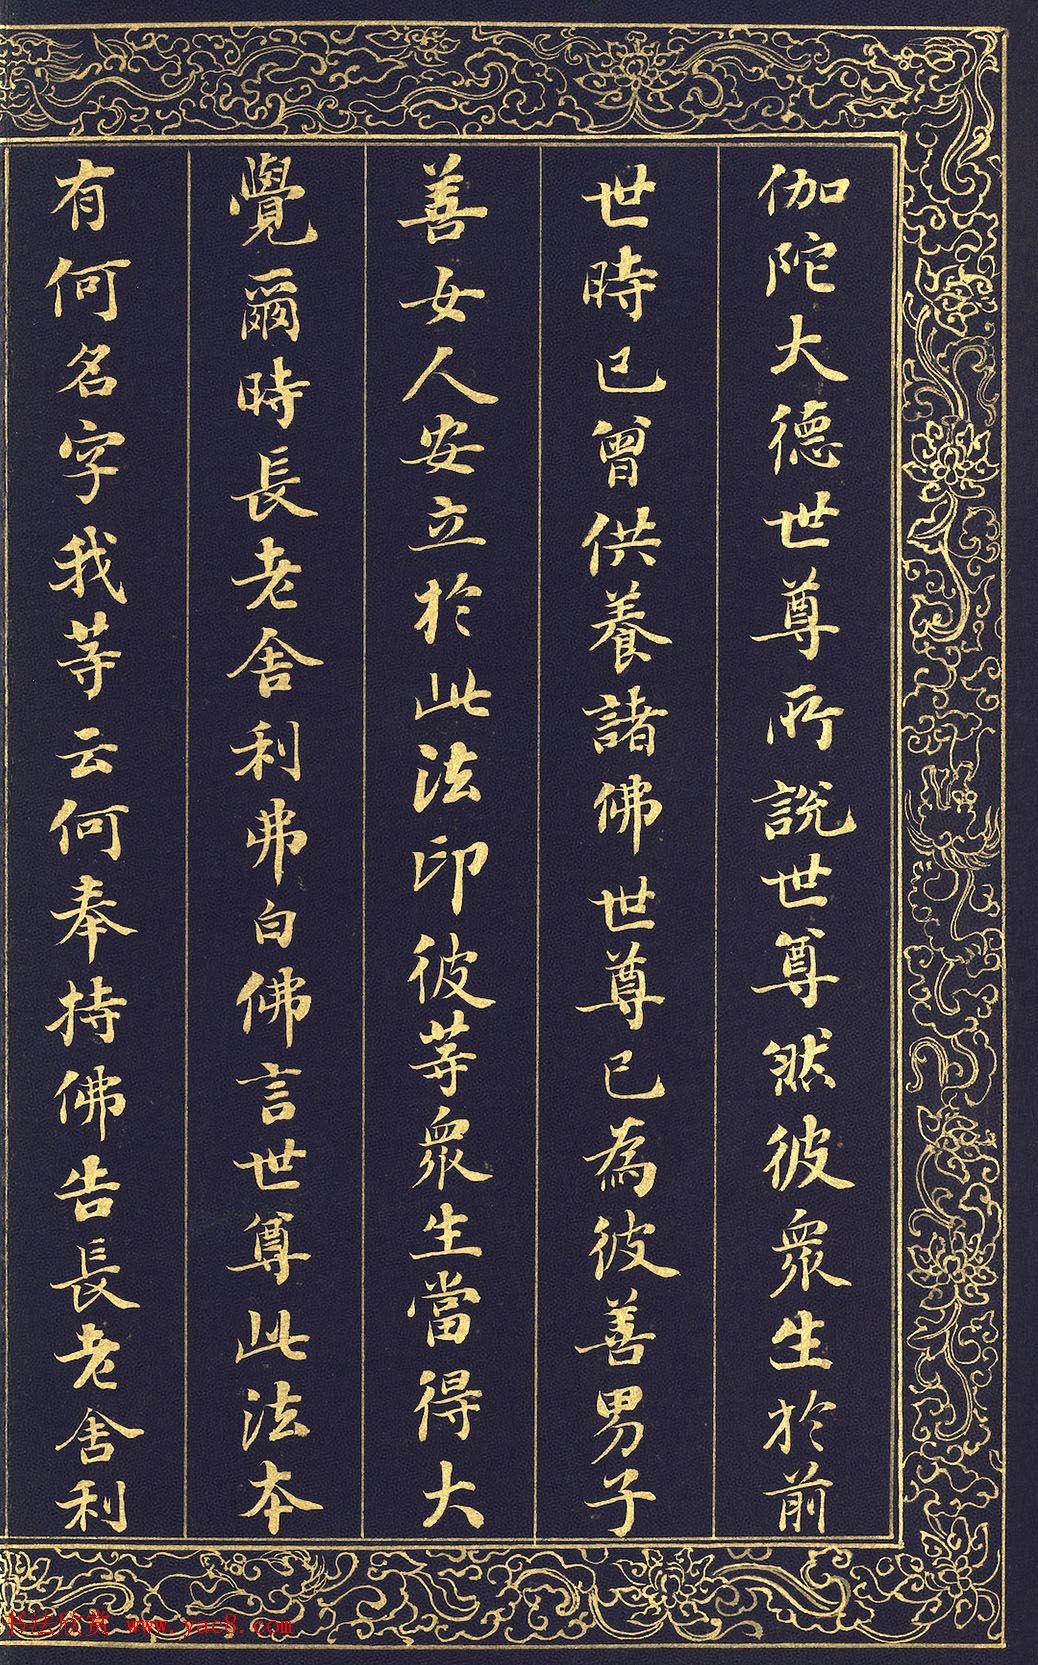 伽陀大德世尊所說世尊然彼眾生於前
世時已曾供養諸佛世尊已為彼善男子
善女人安立於此法印彼等眾生當得大
覺爾時長老舍利弗白佛言世尊此法本
有何名字我等云何奉持佛告長老舍利
书法欣赏 www.yac8.com